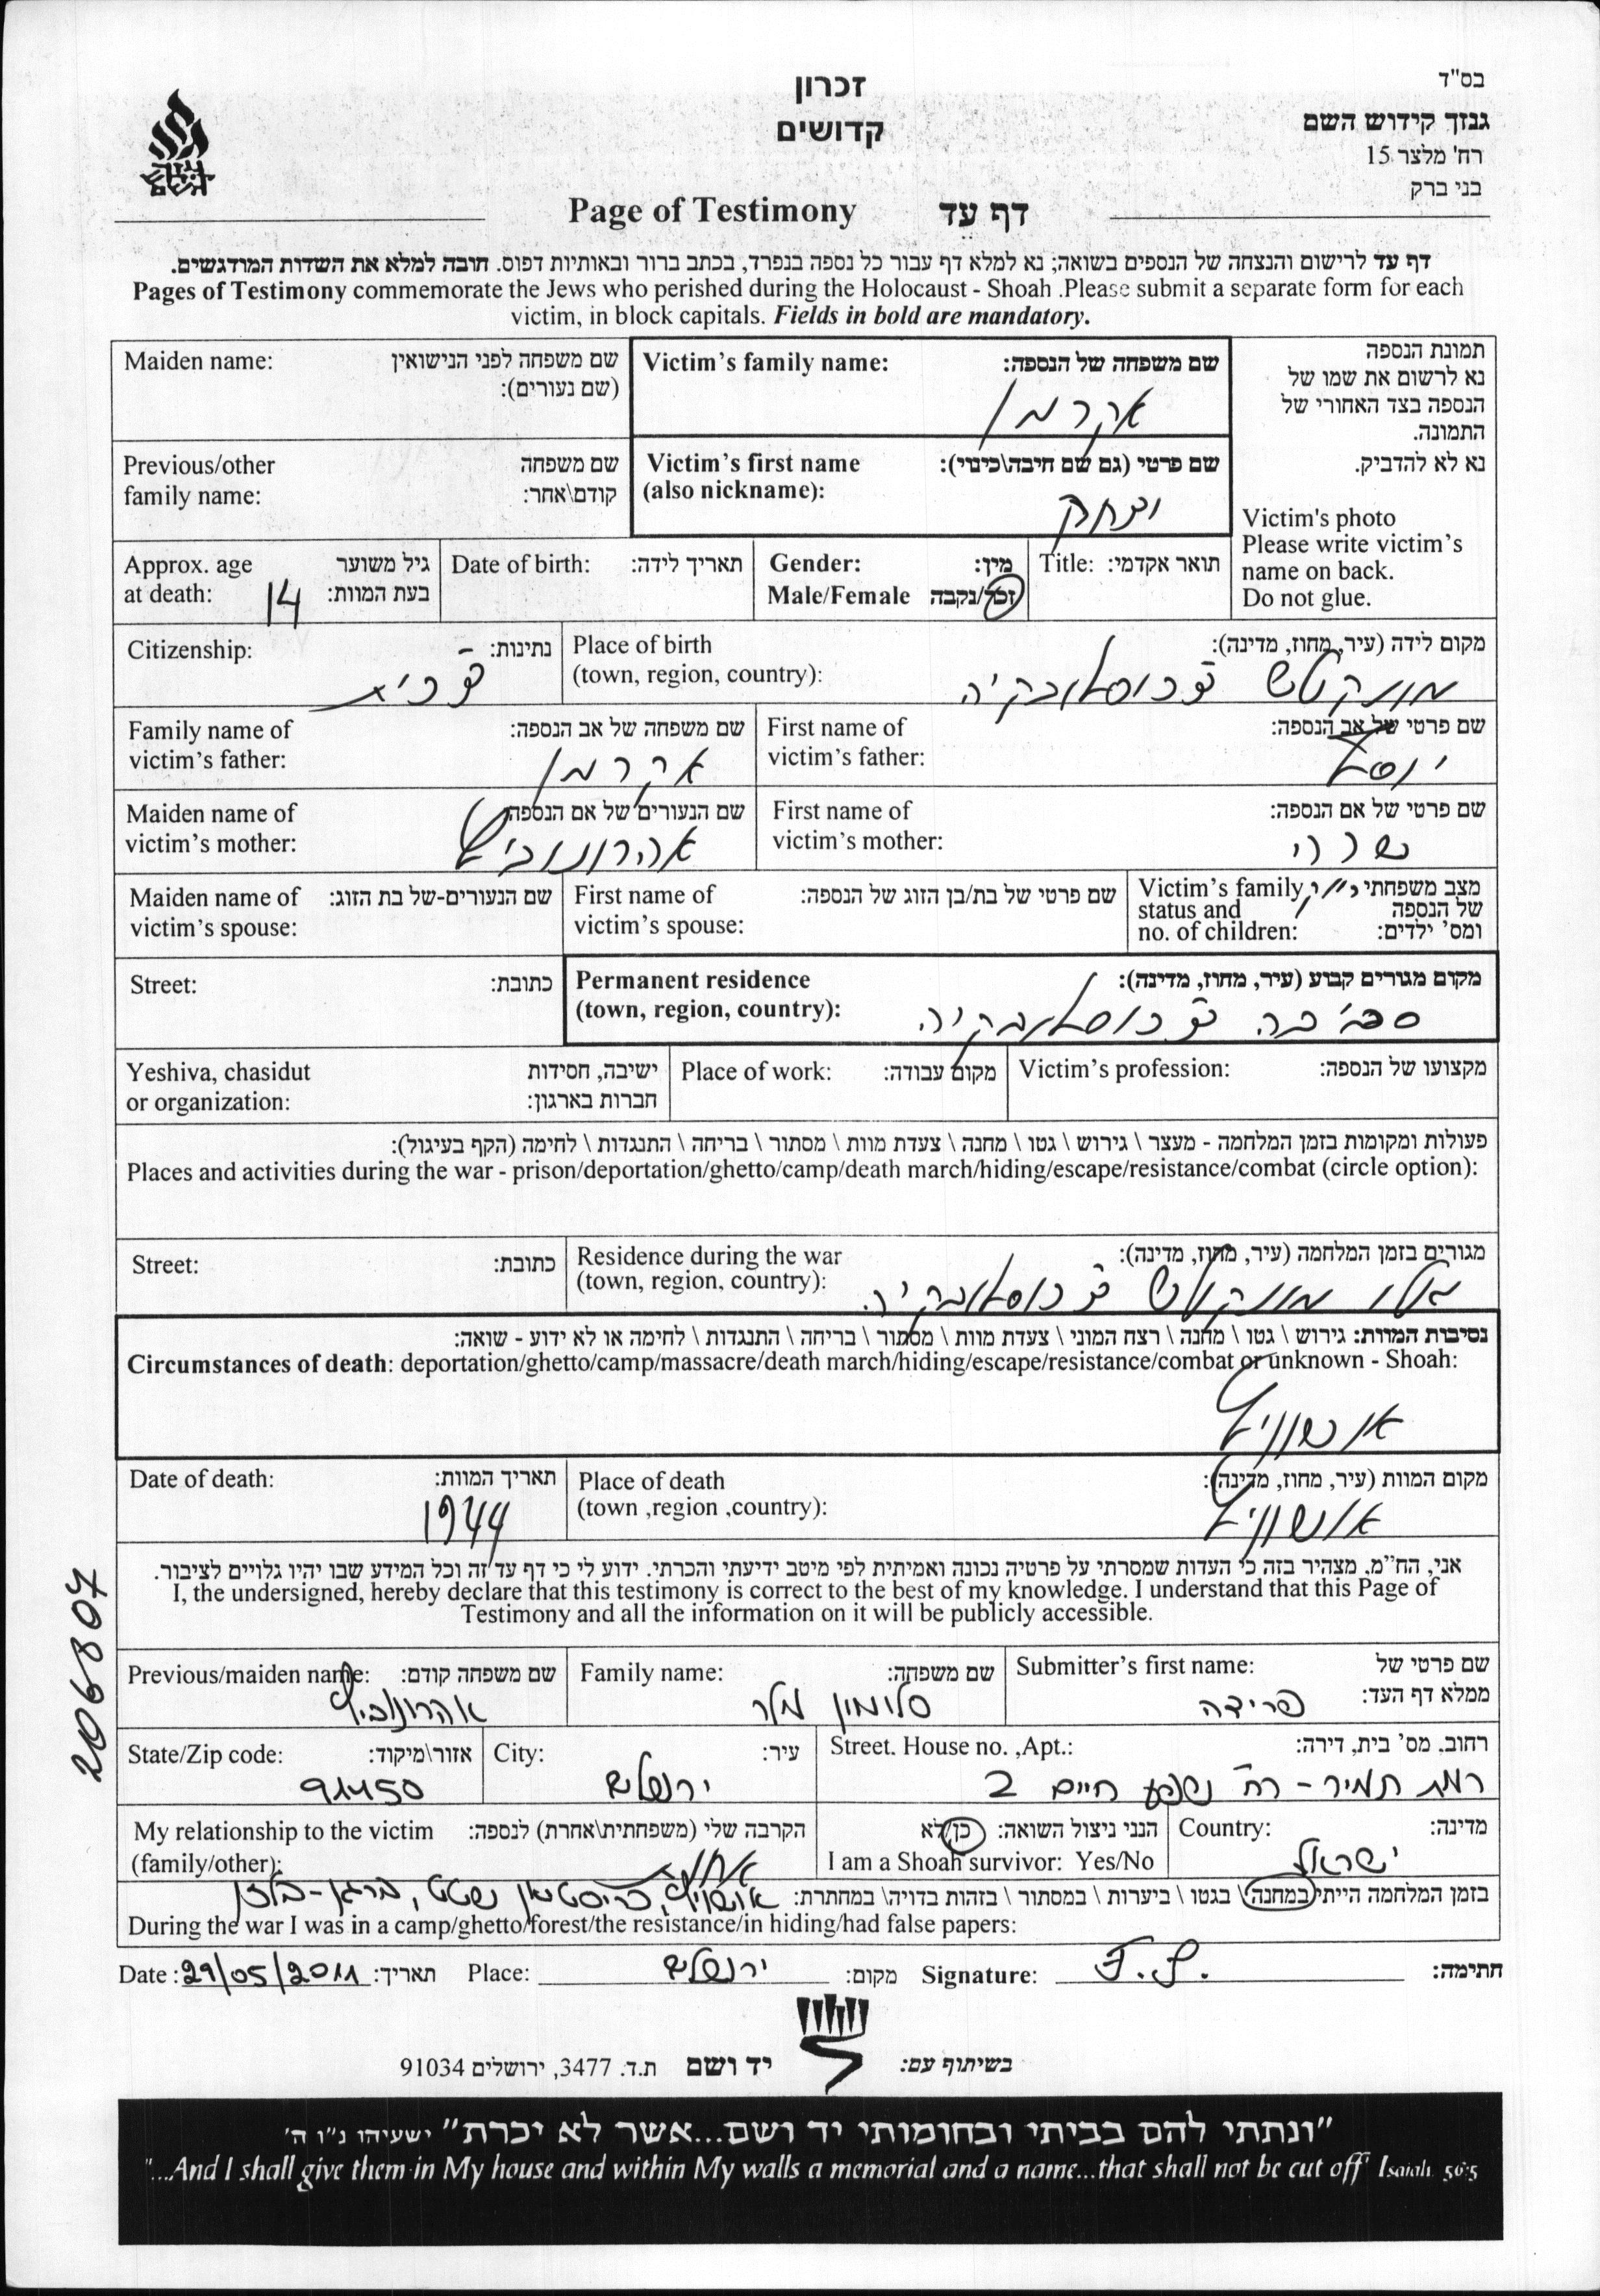 בס"ד
זכרון
קדושים
גנזך קידוש השם
רח' מלצר 15
בני ברק
Page of Testimony דף עד
דף עד לרישום והנצחה של הנספים בשואה; נא למלא דף עבור כל נספה בנפרד, בכתב ברור ובאותיות דפוס. חובה למלא את השדות המודגשים.
Pages of Testimony commemorate the Jews who perished during the Holocaust - Shoah .Please submit a separate form for each
victim, in block capitals. Fields in bold are mandatory.
תמונת הנספה
נא לרשום את שמו של
הנספה בצד האחורי של
התמונה.
נא לא להדביק.
Victim's photo
Please write victim's
name on back.
Do not glue.
Victim's family name: שם משפחה של הנספה:
אקרמן
Maiden name: שם משפחה לפני הנישואין
(שם נעורים):
Victim's first name שם פרטי (גם שם חיבה\כינוי):
(also nickname):
יצחק
Previous/other שם משפחה
family name: קודם\אחר:
Title: תואר אקדמי:
Gender: מין:
Male/Female זכר/נקבה
Date of birth: תאריך לידה:
Approx. age גיל משוער
at death: 14 בעת המוות:
Place of birth מקום לידה (עיר, מחוז, מדינה):
(town, region, country):
מונקטש צ'כוסלובקיה
Citizenship: נתינות:
צ'כית
First name of שם פרטי של אב הנספה:
victim's father: יוסף
Family name of שם משפחה של אב הנספה:
victim's father: אקרמן
First name of שם פרטי של אם הנספה:
victim's mother: שרי
Maiden name of שם הנעורים של אם הנספה:
victim's mother: אהרונוביץ
Victim's family מצב משפחתי
status and של הנספה
no. of children: ומס' ילדים:
First name of שם פרטי של בת/בן הזוג של הנספה:
victim's spouse:
Maiden name of שם הנעורים-של בת הזוג:
victim's spouse:
Permanent residence מקום מגורים קבוע (עיר, מחוז, מדינה):
(town, region, country):
צ'כוסלובקיה
Street: כתובת:
Victim's profession: מקצועו של הנספה:
Place of work: מקום עבודה:
Yeshiva, chasidut ישיבה, חסידות
or organization: חברות בארגון:
פעולות ומקומות בזמן המלחמה - מעצר \ גירוש \ גטו \ מחנה \ צעדת מוות \ מסתור \ בריחה \ התנגדות \ לחימה (הקף בעיגול):
Places and activities during the war - prison/deportation/ghetto/camp/death march/hiding/escape/resistance/combat (circle option):
Residence during the war מגורים בזמן המלחמה (עיר, מחוז, מדינה):
(town, region, country):
גטו מונקטש צ'כוסלובקיה
Street: כתובת:
נסיבות המוות: גירוש \ גטו \ מחנה \ רצח המוני \ צעדת מוות \ מסתור \ בריחה \ התנגדות \ לחימה או לא ידוע - שואה:
Circumstances of death: deportation/ghetto/camp/massacre/death march/hiding/escape/resistance/combat or unknown - Shoah:
אושוויץ
Place of death מקום המוות (עיר, מחוז, מדינה):
(town ,region ,country):
אושוויץ
Date of death: תאריך המוות:
1944
אני, הח"מ, מצהיר בזה כי העדות שמסרתי על פרטיה נכונה ואמיתית לפי מיטב ידיעתי והכרתי. ידוע לי כי דף עד זה וכל המידע שבו יהיו גלויים לציבור.
I, the undersigned, hereby declare that this testimony is correct to the best of my knowledge. I understand that this Page of
Testimony and all the information on it will be publicly accessible.
Submitter's first name: שם פרטי של
ממלא דף העד:
פרידה
Family name: שם משפחה:
סלומון מלר
Previous/maiden name: שם משפחה קודם:
אהרונוביץ
Street. House no. ,Apt.: רחוב, מס' בית, דירה:
רמת תמיר - רח' שפע חיים 2
City: עיר:
ירושלים
State/Zip code: אזור\מיקוד:
91450
Country: מדינה:
ישראל
הנני ניצול השואה: כן/לא
I am a Shoah survivor: Yes/No
My relationship to the victim הקרבה שלי (משפחתית\אחרת) לנספה:
(family/other):
בזמן המלחמה הייתי במחנה\ בגטו \ ביערות \ במסתור \ בזהות בדויה\ במחתרת: אושוויץ, כריסטיאן שטט, ברגן-בלזן
During the war I was in a camp/ghetto/forest/the resistance/in hiding/had false papers:
Date: 29/05/2011 תאריך: Place: ירושלים מקום: Signature: F.S. חתימה:
206807
בשיתוף עם: יד ושם ת.ד. 3477, ירושלים 91034
"ונתתי להם בביתי ובחומותי יד ושם...אשר לא יכרת" ישעיהו נ"ו ה'
"...And I shall give them in My house and within My walls a memorial and a name...that shall not be cut off" Isaiah 56:5